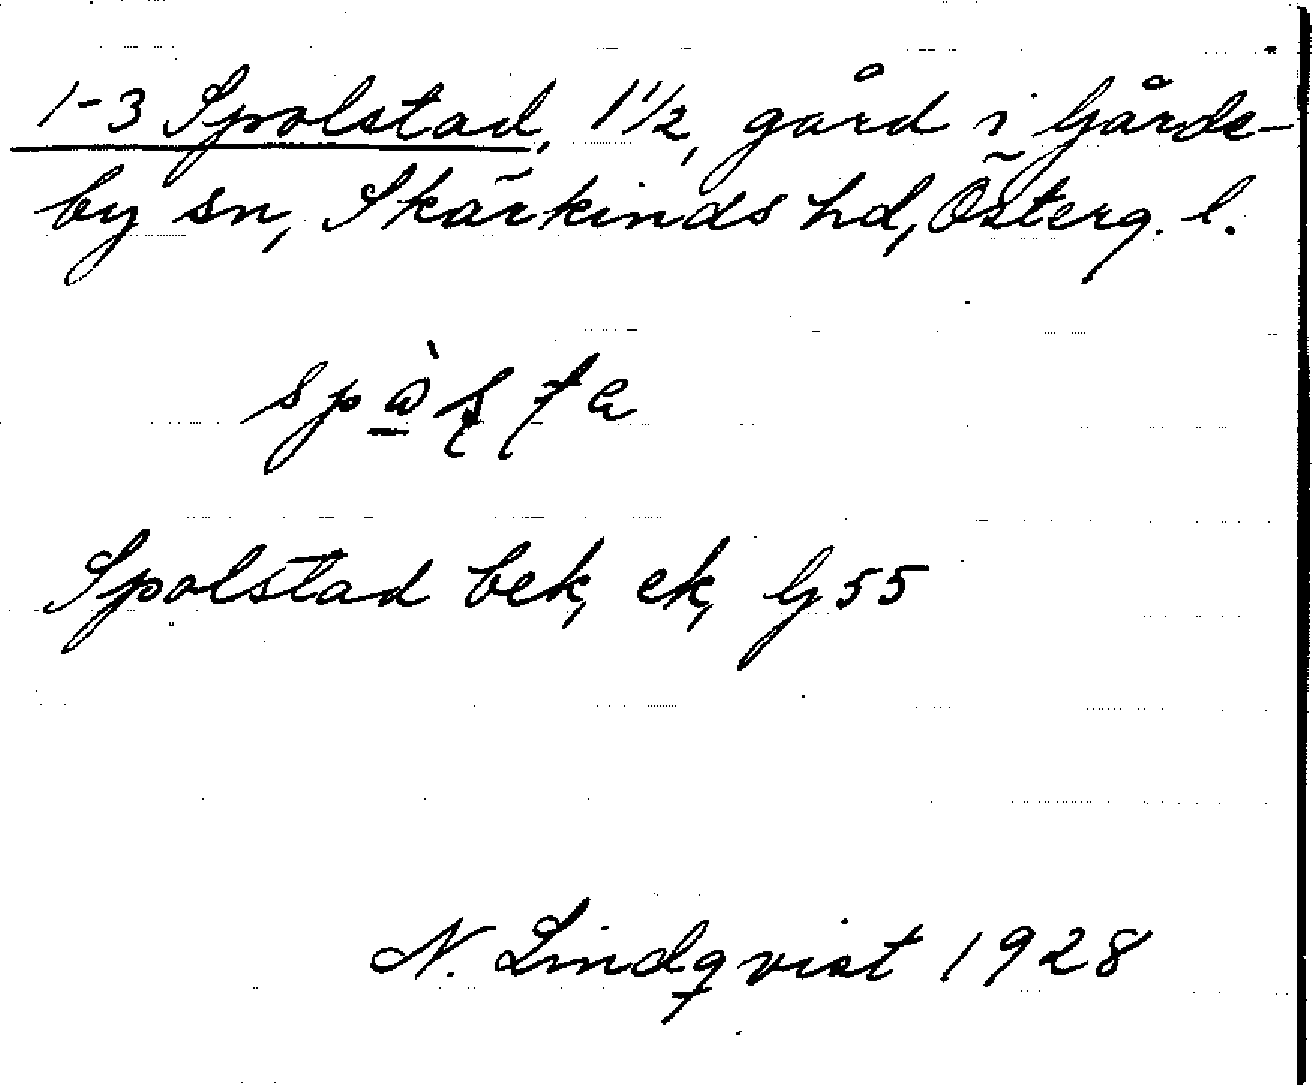 1-3 Spolstad, 1 1/2, gård i Gårde-
by sn, Skärkinds hd, Österg. l.
Spolstad bek, ek, G 55
N. Lindqvist 1928